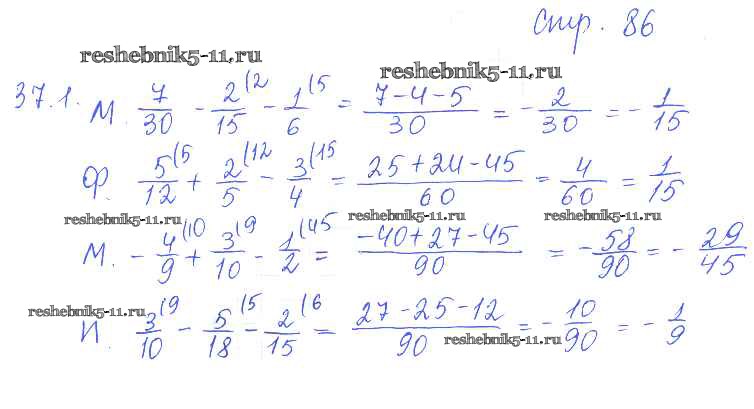 Стр. 86
reshebnik5-11.ru
reshebnik5-11.ru
37.1. М. 7/30 - 2/15 (2 - 1/6 (5 = (7-4-5)/30 = -2/30 = -1/15
Ф. 5/12 (5 + 2/5 (12 - 3/4 (15 = (25+24-45)/60 = 4/60 = 1/15
reshebnik5-11.ru reshebnik5-11.ru reshebnik5-11.ru
М. -4/9 (10 + 3/10 (9 - 1/2 (45 = (-40+27-45)/90 = -58/90 = -29/45
reshebnik5-11.ru
И. 3/10 (9 - 5/18 (5 - 2/15 (6 = (27-25-12)/90 = -10/90 = -1/9
reshebnik5-11.ru